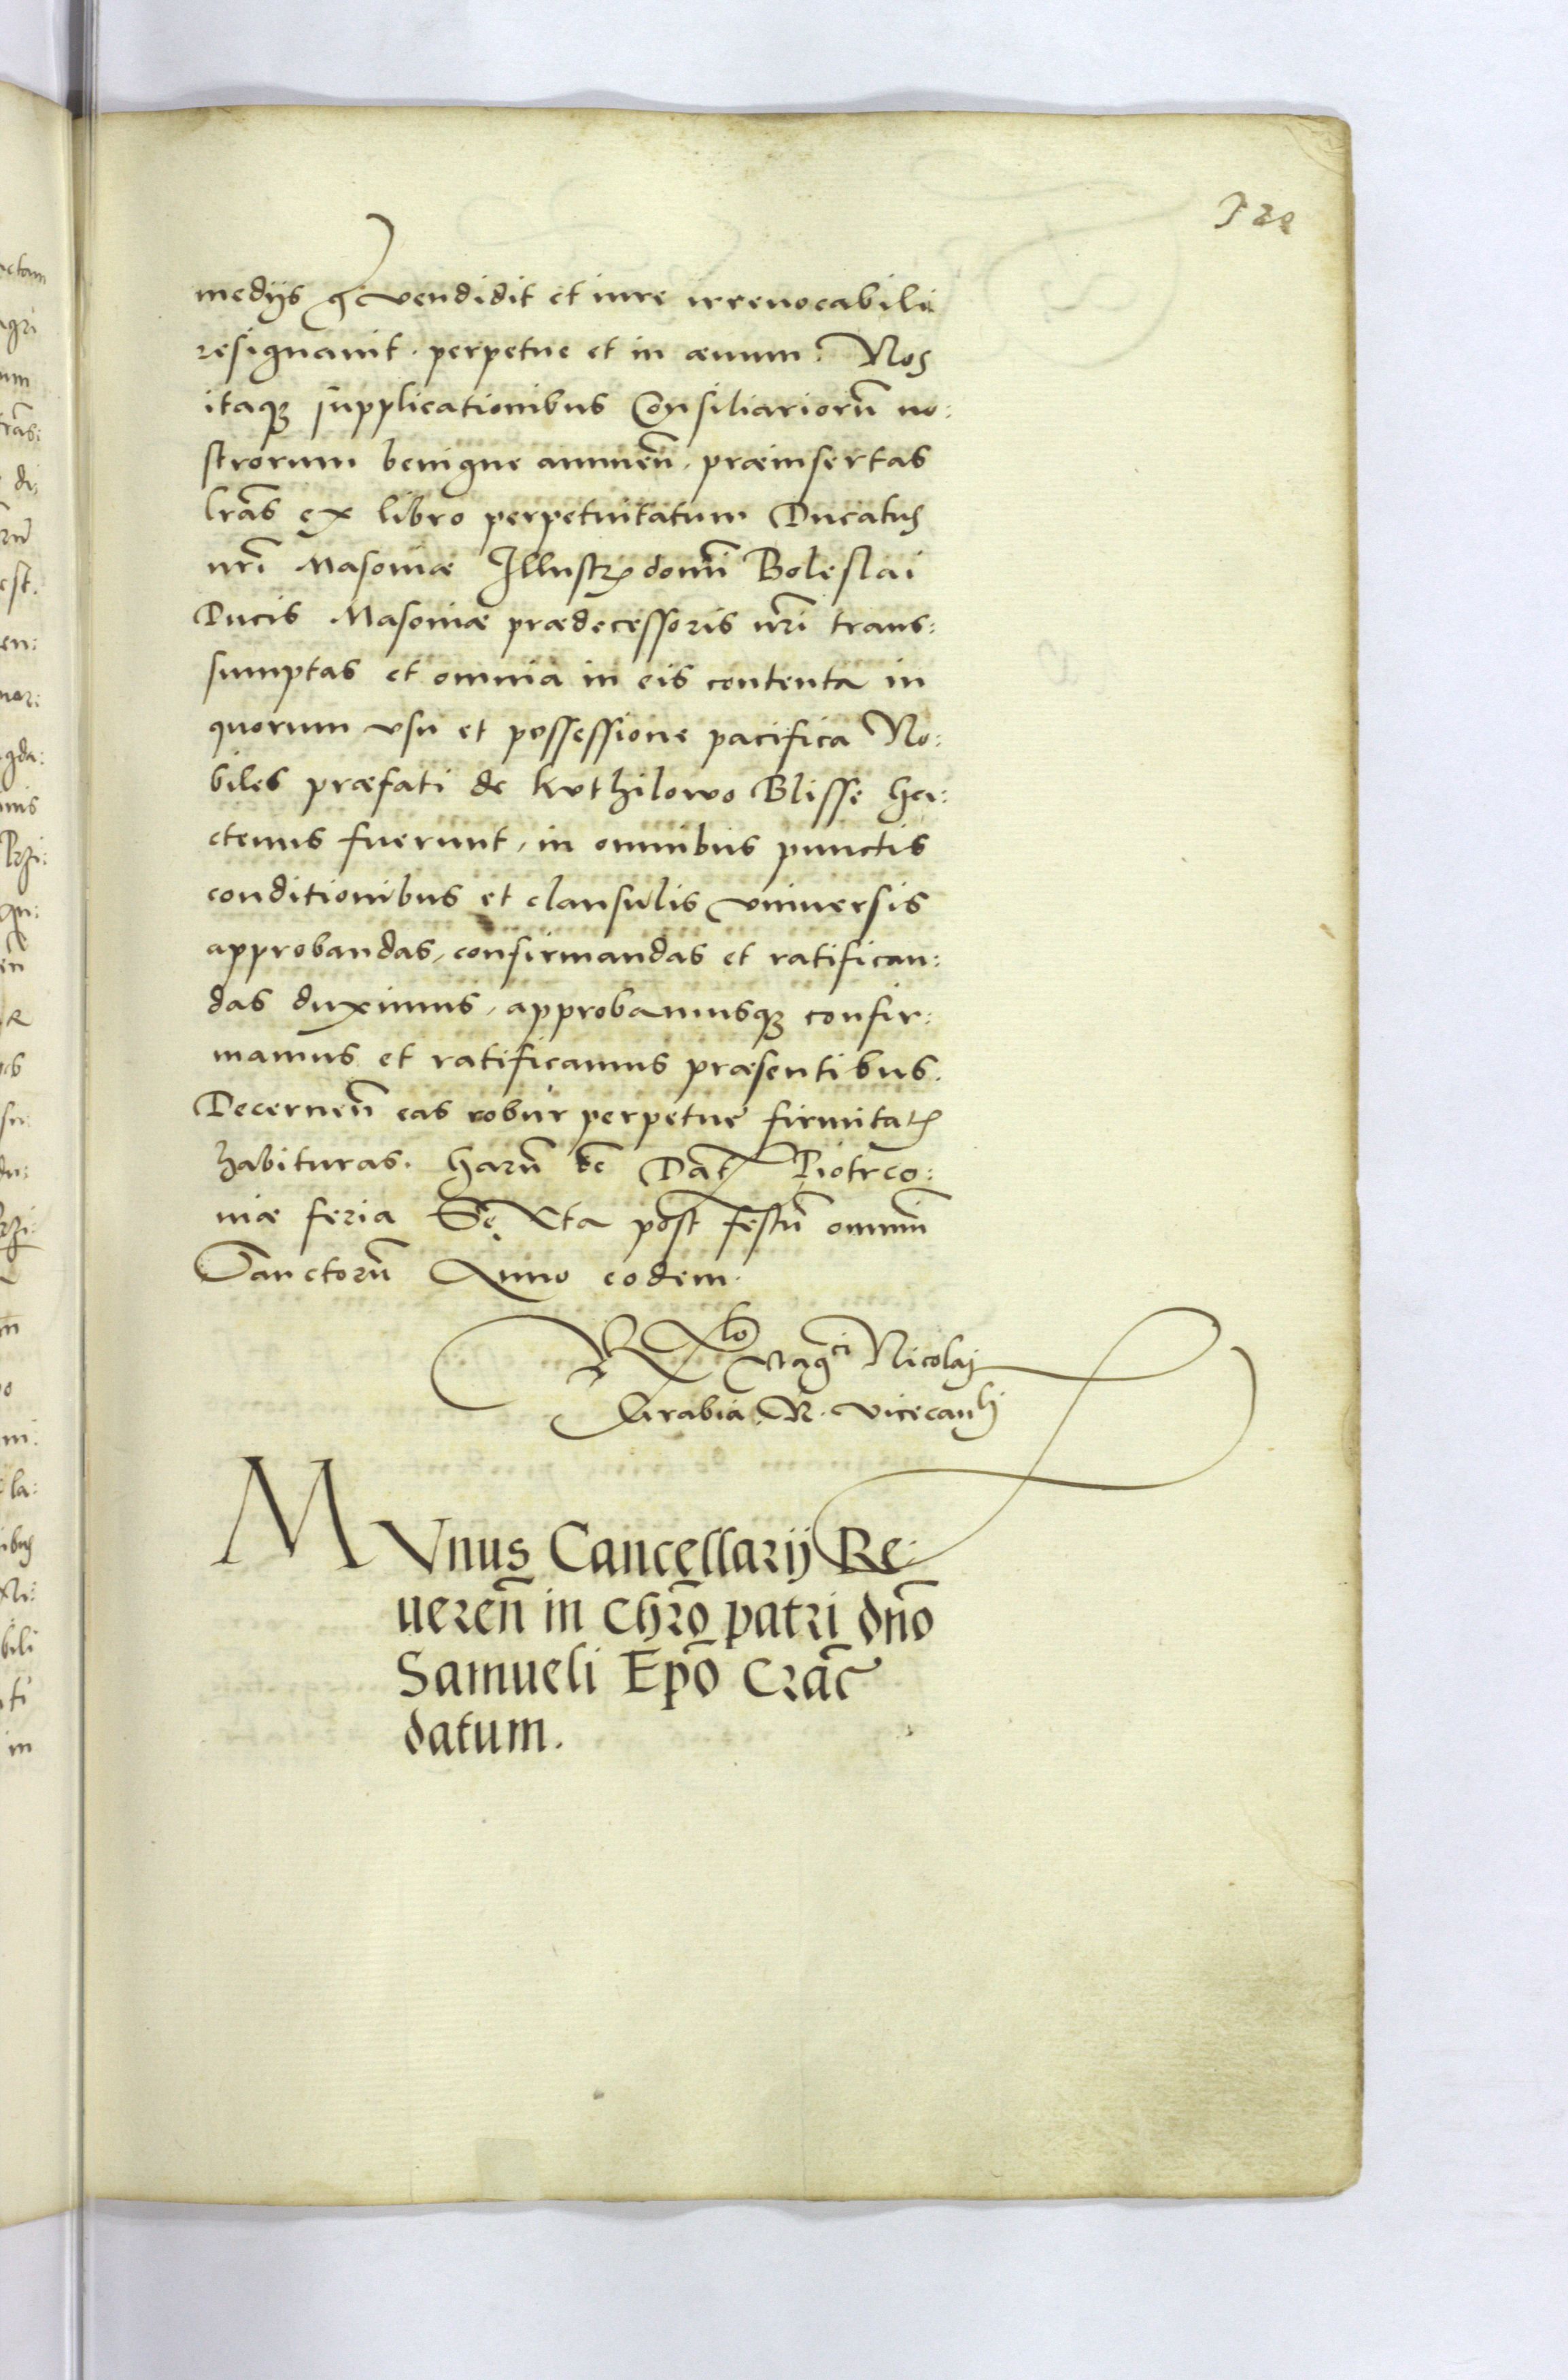 medijs q̃ vendidit et iure irreuocabili
resignauit. perpetue et in aeuum. Nos
itaq3 supplicationibus Consiliariorũ no:
strorum benigne annueñ. praeinsertas
lrãs ex libro perpetuitatum Ducatus
nrĩ Masouiae Illustrꝭ domĩ Boleslai
Ducis Masouiae praedecessoris nrĩ trans:
sumptas et omnia in eis contenta in
quorum vsu et possessione pacifica No:
biles praefati de kuthilowo Blisse ha:
ctenus fuerunt, in omnibus punctis
conditionibus et clausulis vniuersis
approbandas, confirmandas et ratifican:
das duximus, approbamusq3 confir:
mamus et ratificamus praesentibus.
Decerneñ eas robur perpetue firmitatꝭ
habituras. harũ tẽ Dat Piotrco:
uiae feria Sexta post festũ omniũ
Sanctorũ Anno eodem.
Rlõ Mag^ci Nicolaj
Grabia R. vicecanh
MVnus Cancellarij Re:
uereñ in Chrõ patri dñõ
Samueli Epõ Crãc
datum.